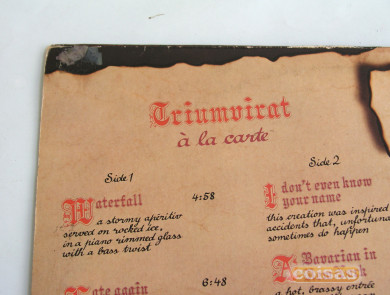 Triumvirat
à la carte
Side 1
Waterfall 4:58
a stormy apéritiv
served on rocked ice,
in a piano rimmed glass
with a bass twist
6:48
again
Side 2
I don't even know
your name
this creation was inspired
accidents that, unfortuna
sometimes do happen
A Bavarian in
a hot, brassy entrée
coisas